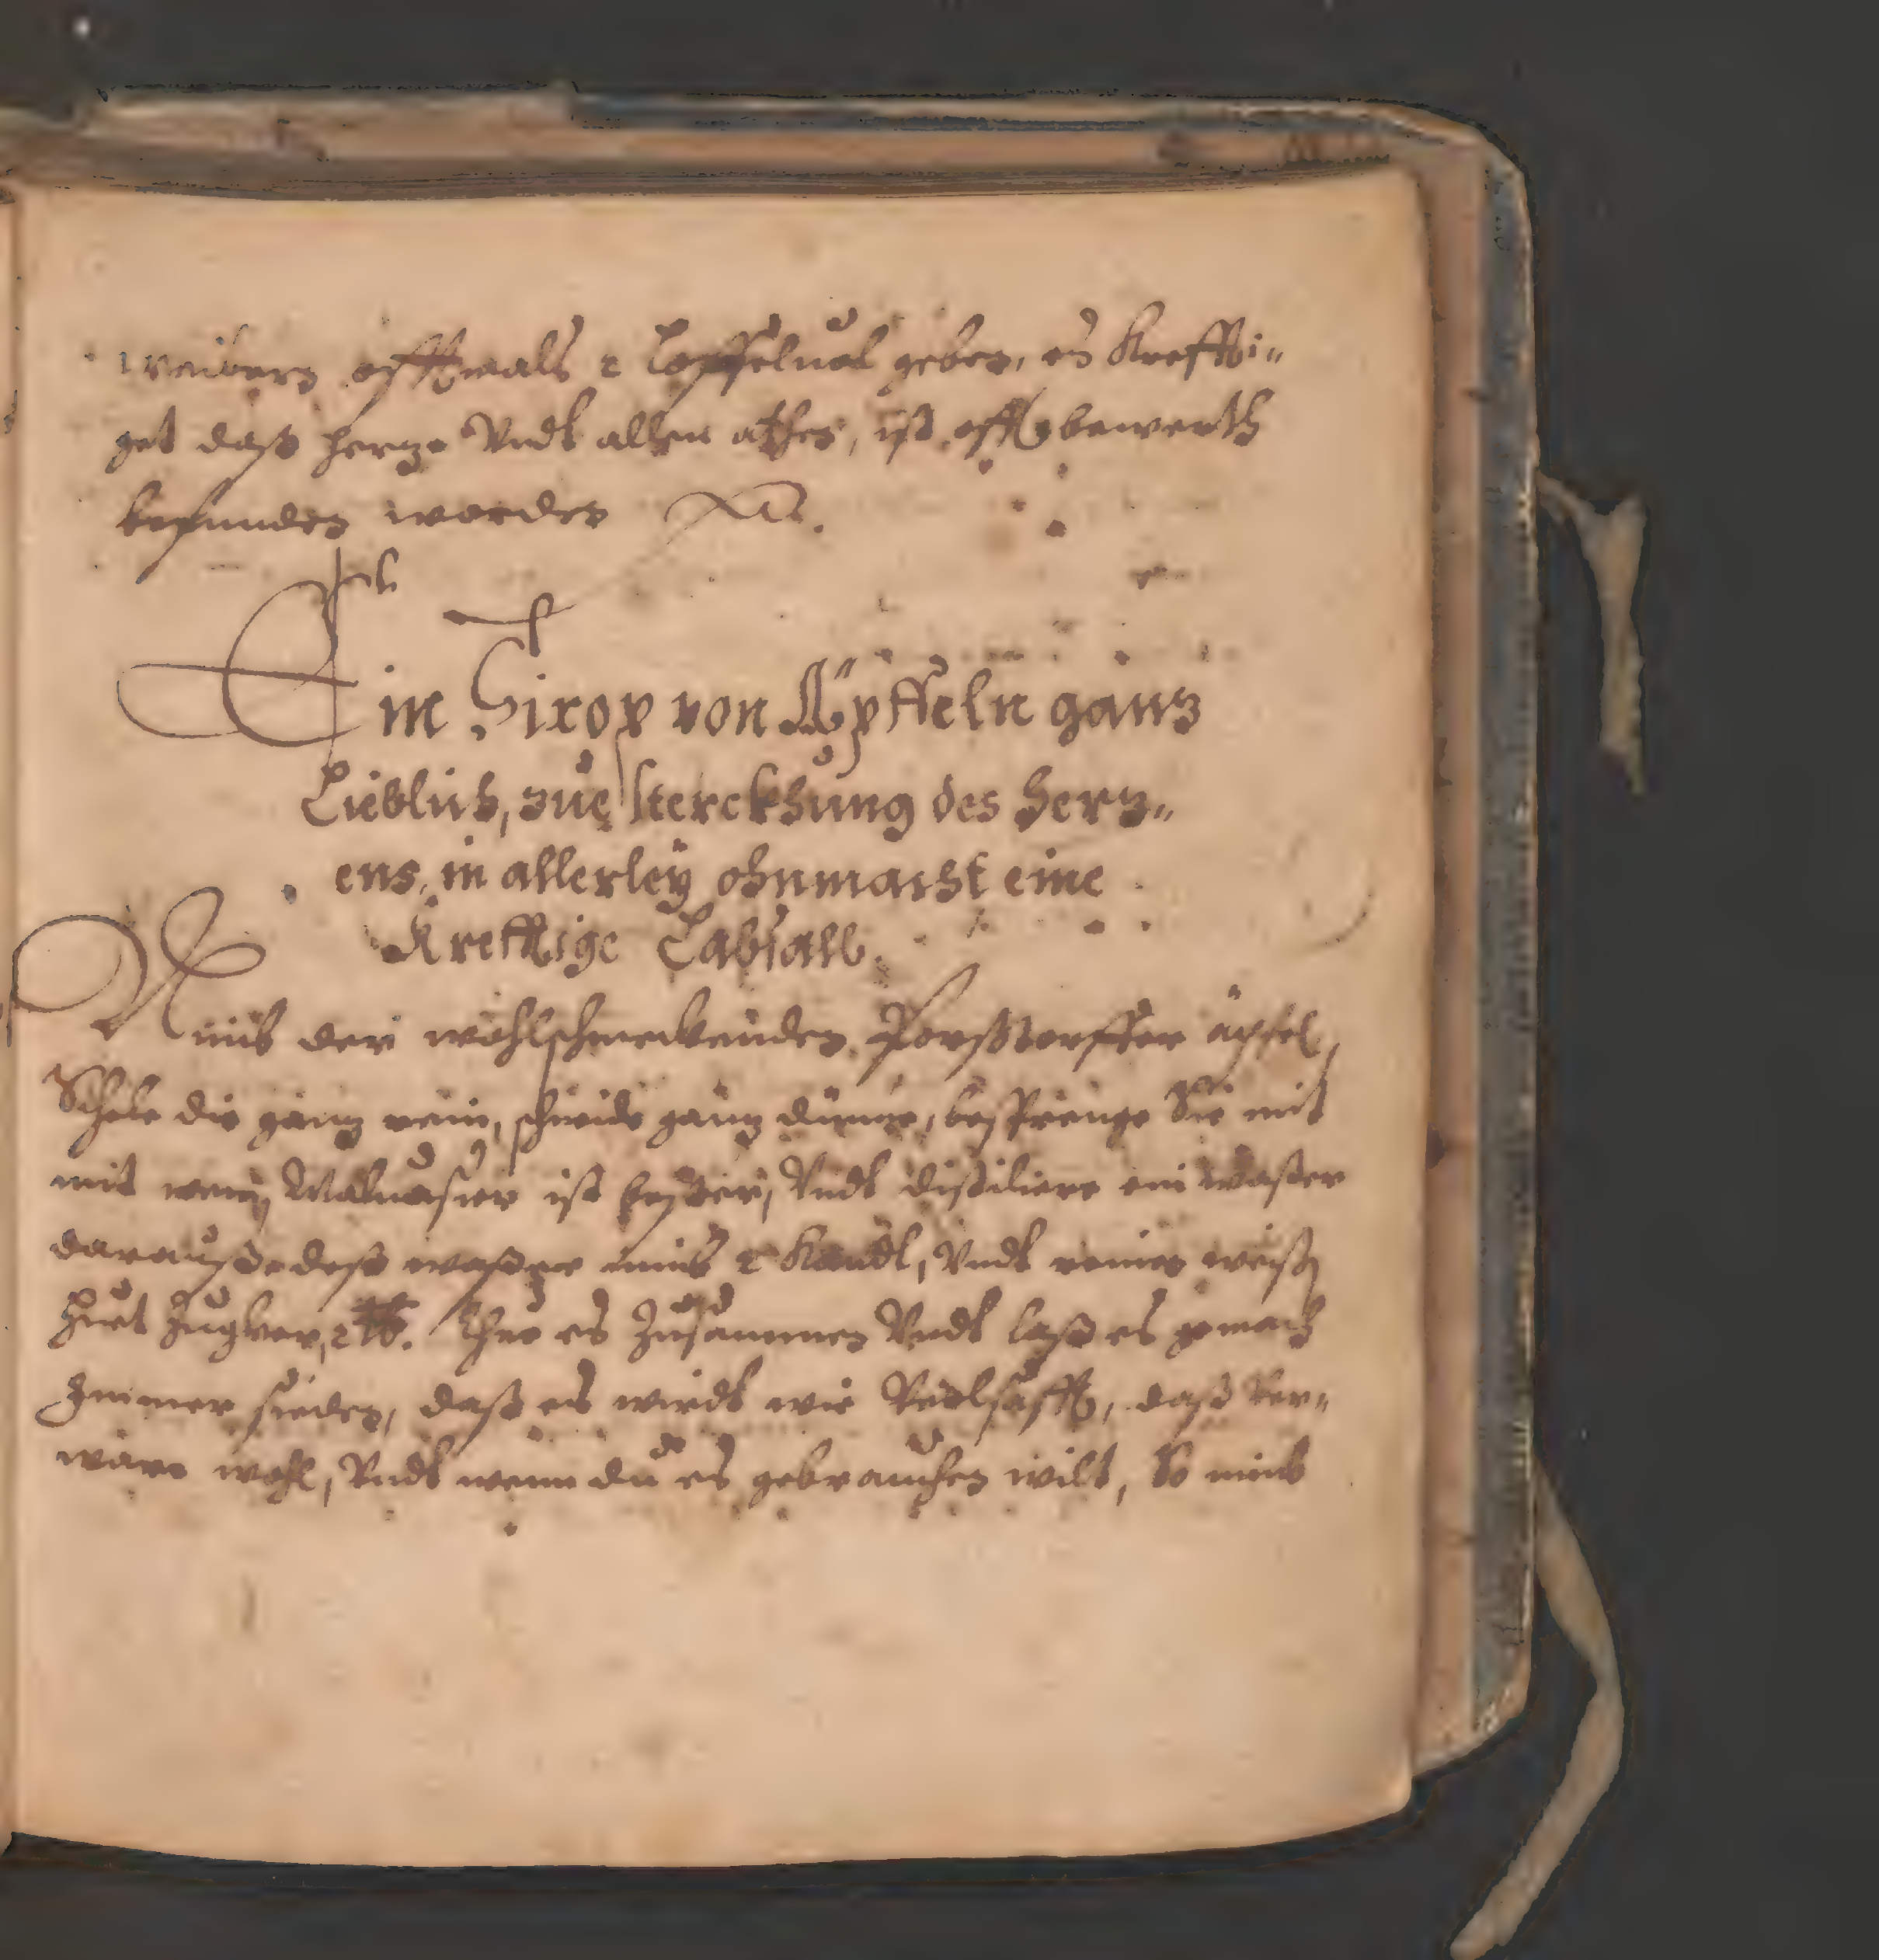 weibern offtmals 2 Löffelvol geben, es Kreffti„
get daß hertz Vndt allen athem, ist offt bewerth
befunden worden
Ein Sirop von Äpffeln gantz
Lieblich, zue sterckhung des Hertz„
ens, in allerley ohnmacht eine
Krefftige Labsall.
Nimb der wohlschmeckenden Porßtorffer äpfel,
Schele die gantz rein, schneide gantz dünne, besprenge Sie mit
mit wein, Maluasier ist besser, Vndt distiliere ein waßer
darauß, deß waßers nimb 2 Kandl, Vndt reinen weiß
Hüet Zugker, 2 ℔. Thue es Zusammen Vndt laß es gemach
Immer sieden, daß es wirdt wie Veelsafft, daß ver„
ware wohl, Vndt wenn du es gebrauchen wilt, So nimb